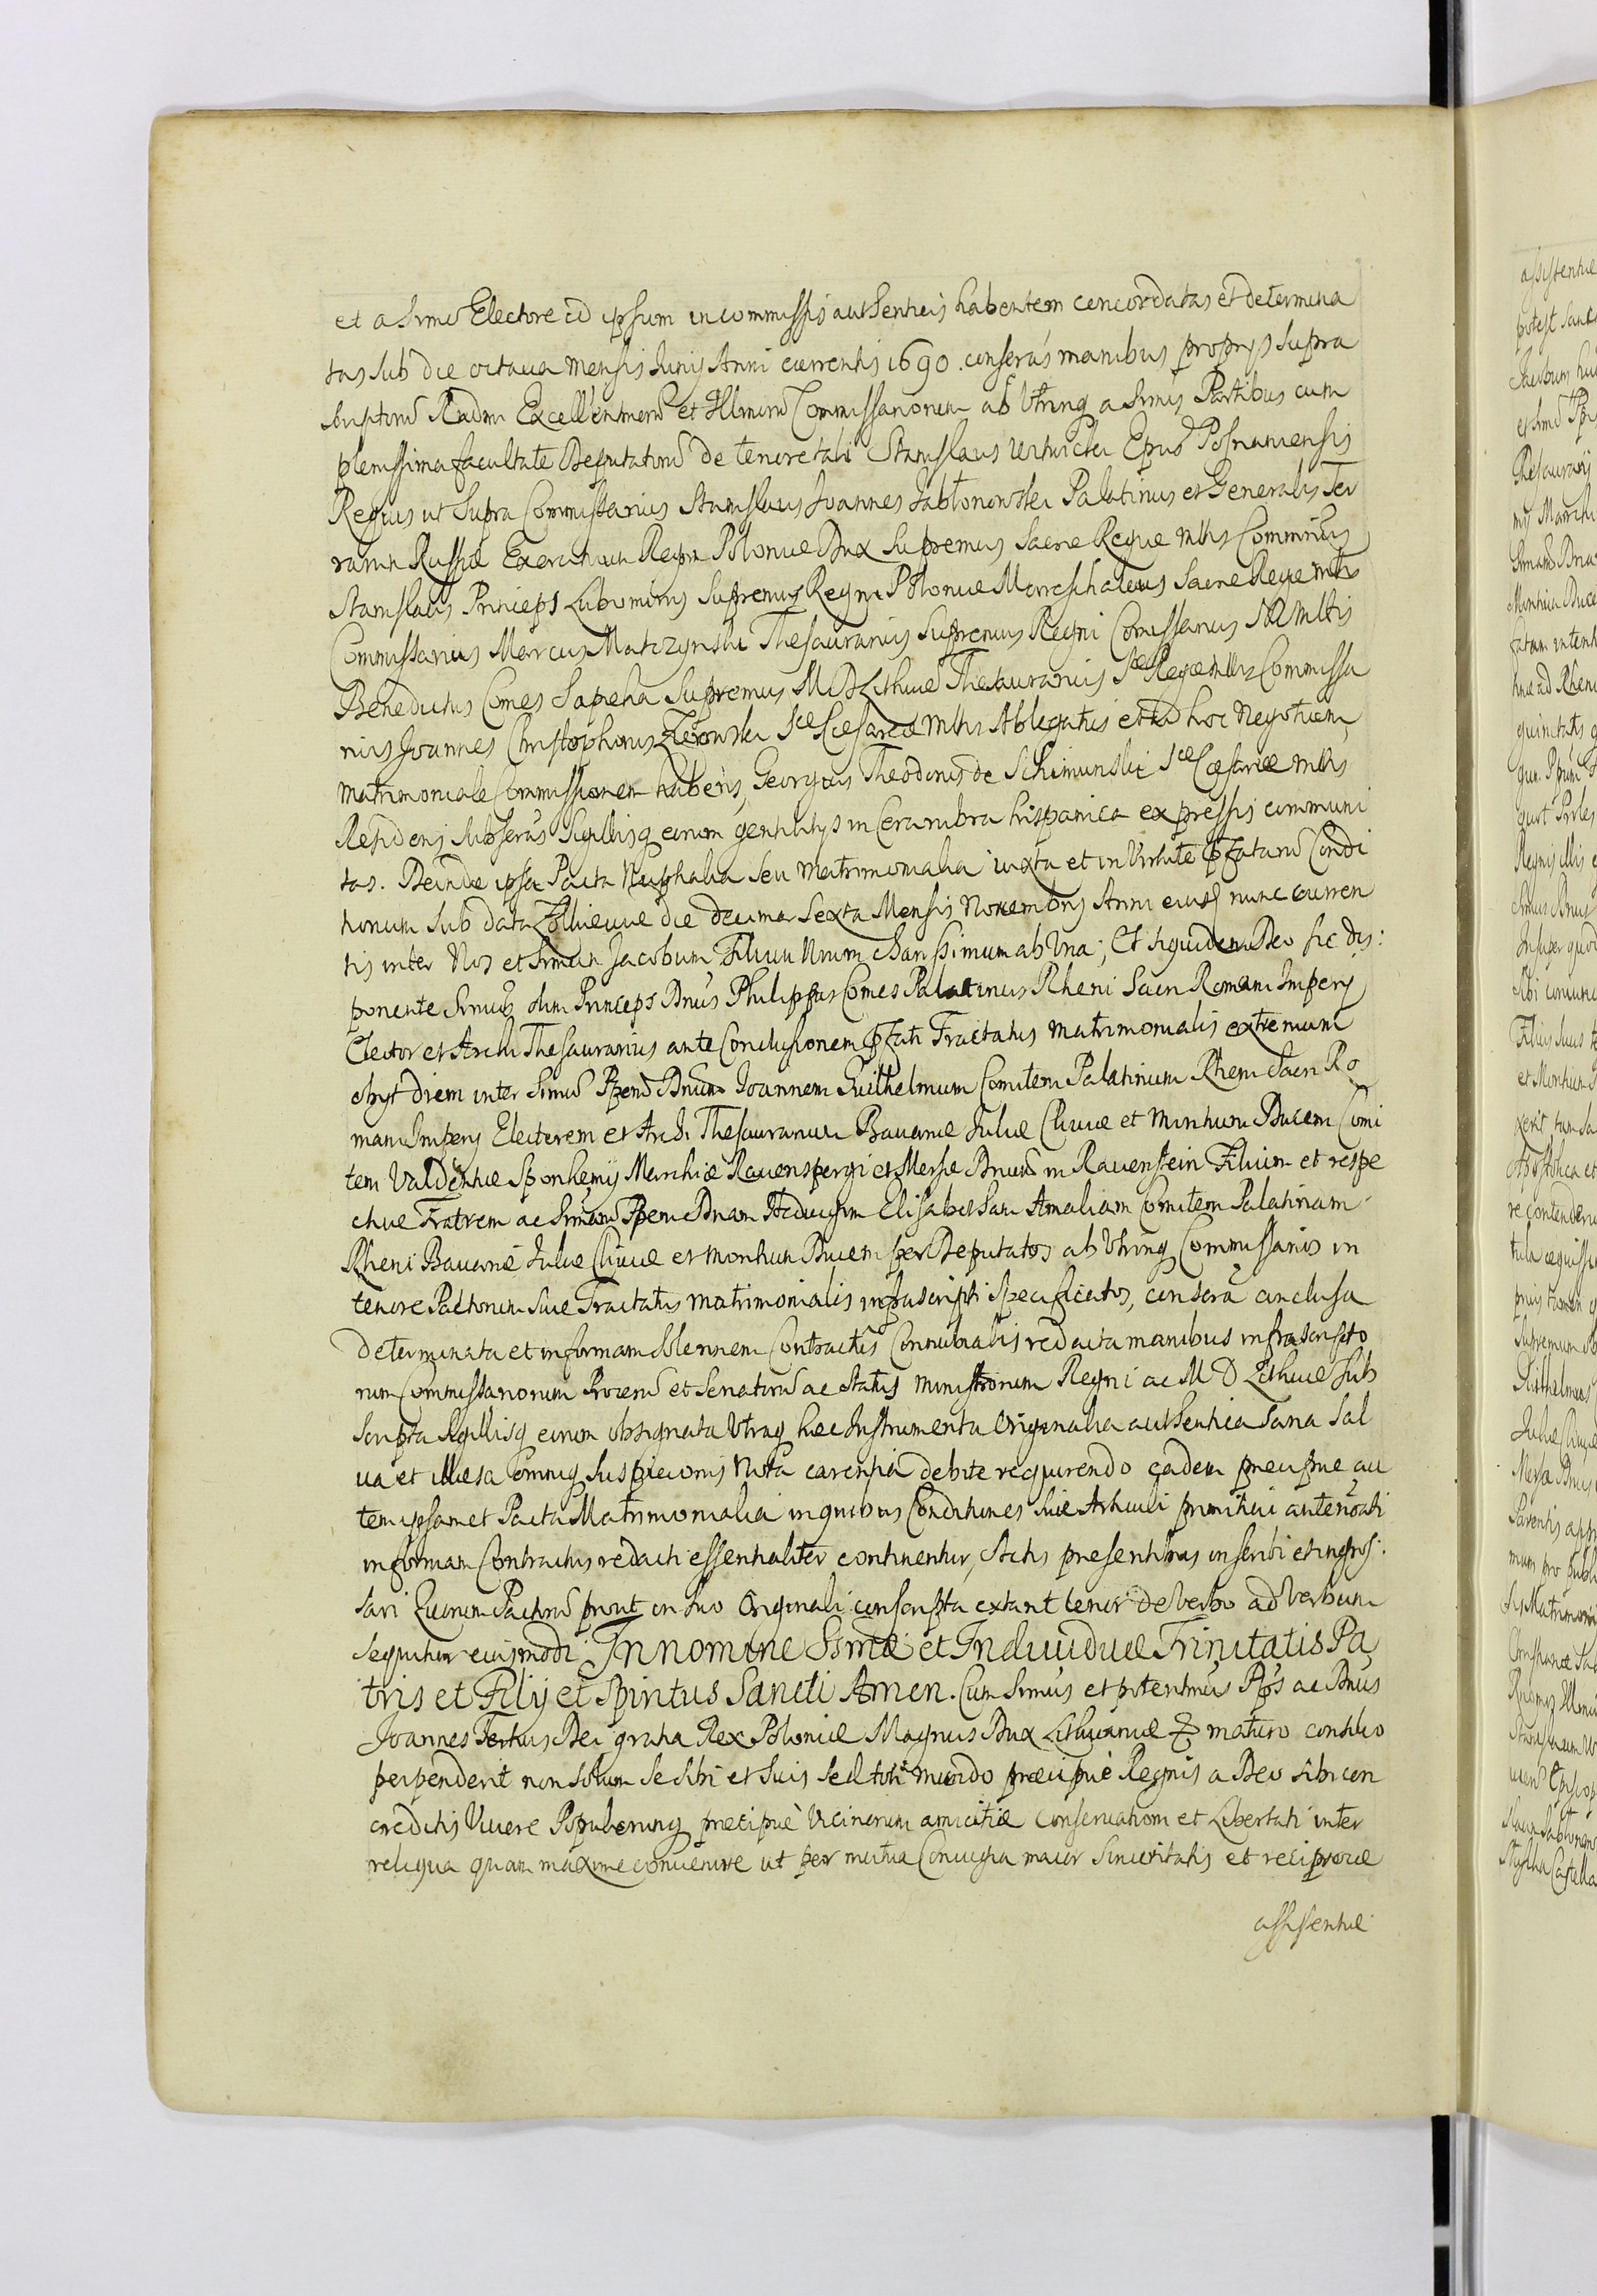 et a Srmo Electore id ipsum in commissis authenticis habentem concordatas et determina
tas sub die octava Mensis Junij Anni currentis 1690. conscrãs manibus proprijs supra
scriptorũ Rndmi Excellentmorũ et Illmorũ Commissariorum ab Utrinq a Srmis Partibus cum
plenissima facultate Deputatorũ de tenore tali Stanislaus Witwicki Epus Posnaniensis
Regius ut supra Commissarius Stanislaus Joannes Jabłonowski Palatinus et Generalis Ter
rarum Russiæ Exercituum Regni Poloniæ Dux Supremus Sacræ Regiæ Mttis Commrius
Stanislaus Princeps Lubomirus Supremus Regni Poloniæ Mareschalcus Sacræ Regiæ Mttis
Commissarius Marcus Matczynski Thesaurarius Supremus Regni Comissarius SR Mttis
Benedictus Comes Sapeha Supremus M D Lithuæ Thesaurarius Scæ Regiæ Mttis Commissa
rius Joannes Christophorus Zierowski Scæ Cæsareæ Mttis Ablegatus et ad hoc Negotium
Matrimoniale Commissionem habens, Georgius Theodorus de Schimunski Scæ Cæsareæ Mttis
Residens subscrãs Sigillisq eorum gentilitijs in Cera rubra hispanica expressis communi
tas. Deinde ipsa Pacta Nuptialia seu Matrimonialia iuxta et in Virtute pfatarũ Condi
tionum sub data Zolkieuiæ die decima sexta Mensis Novembris Anni eiusd nunc curren
tis inter Nos et Srmum Jacobum Filium Nrum charissimum ab Una; Et siquidem Deo sic dis:
ponente Srmus olim Princeps Dnus Philippus Comes Palatinus Rheni Sacri Romani Imperij
Elector et Archi Thesaurarius ante Conclusionem pfati Tractatus Matrimonialis extremum
obijt diem inter Srmũ Ppem Dnum Joannem Guilhelmum Comitem Palatinum Rheni Sacri Ro
mani Imperij Electorem et Archi Thesaurarium Bavariæ Juliæ Cliviæ et Montium Ducem Comi
tem Valdentiæ Sponhemij Marchiæ Ravenspergi et Mersæ Dnum in Ravenstein Filium et respe
ctive Fratrem ac Srmam Ppem Dnam Hedvigim Elisabetham Amaliam Comitem Palatinam
Rheni Bavariæ Juliæ Cliviæ et Montium Ducem per Deputatos ab Utrinq Commissarios in
tenore Pactorum sive Tractatus Matrimonialis infrascripti specificatos, conscra conclusa
determinata et in formam solennem Contractus Connubialis redacta manibus infrascripto
rum Commissariorum Procerũ et Senatorũ ac Status Ministrorum Regni ac M D Lithuæ sub
scripta Sigillisq eorum obsignata Utraq hæc Instrumenta Originalia authentica sana sal
va et illæsa omniq suspicionis Nota carentia debite requirendo eadem præcipue au
tem ipsamet Pacta Matrimonialia in quibus Conditiones sive Articuli primitivi antenotati
in formam Contractus redacti essentialiter continentur, Actis præsentibus inscribi et ingros:
sari Quorum Pactorũ prout in suo Originali conscripta extant tenor de verbo ad Verbum
sequitur eiusmodi In nomine Ssmæ et Individuæ Trinitatis Pa
tris et Filij et Spiritus Sancti Amen. Cum Srmus et potentmus Pps ac Dnus
Joannes Tertius Dei gratia Rex Poloniæ Magnus Dux Lithuaniæ & maturo consilio
perpenderit non solum se sibi et suis sed toti mundo præcipuè Regnis a Deo sibi con
creditis Vivere Populorumq præcipuè Vicinorum amicitiæ conservationi et Libertati inter
reliqua quam maxime convenire ut per mutua Connubia maior Sinceritatis et reciprocæ
assistentiæ